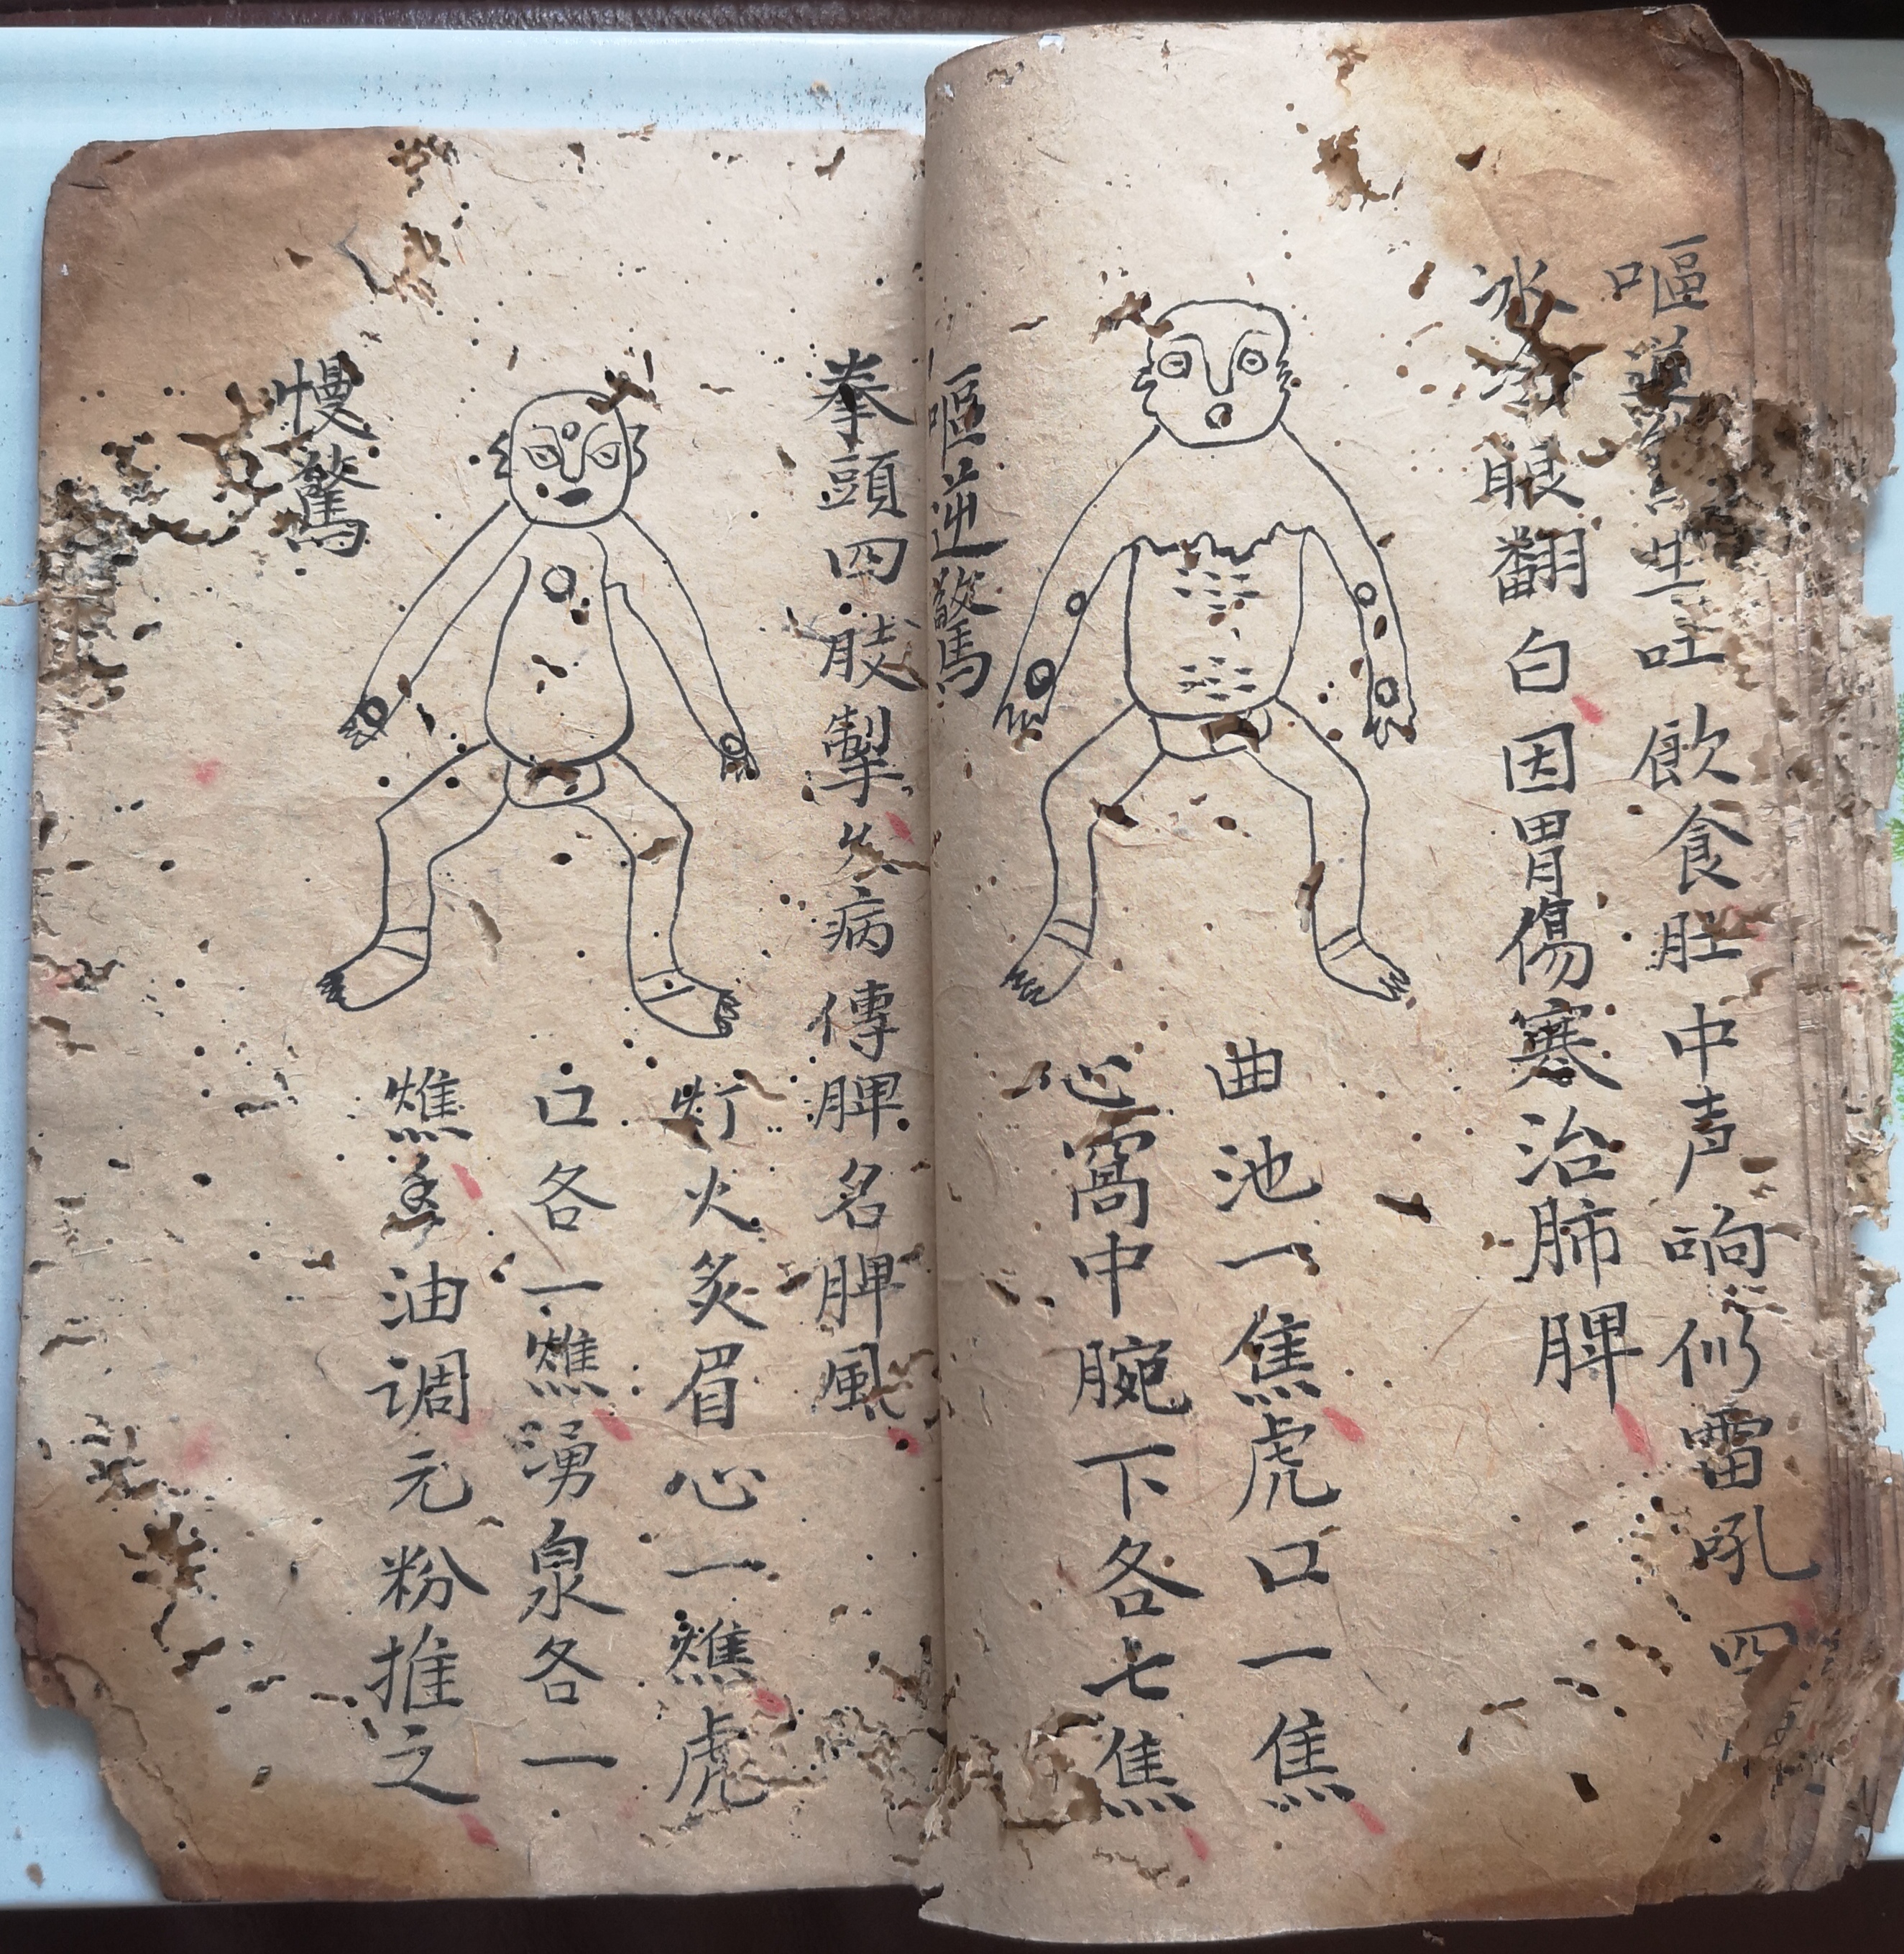 嘔逆驚生吐飲食肚中声响似雷吼四
冰冷眼翻白因胃傷寒治肺脾
曲池一焦虎口一焦
心窩中腕下各七焦
嘔逆驚
拳頭四肢掣失病傳脾名脾風
灯火炙眉心一燋虎
口各一燋湧泉各一
燋油调元粉推之
慢驚